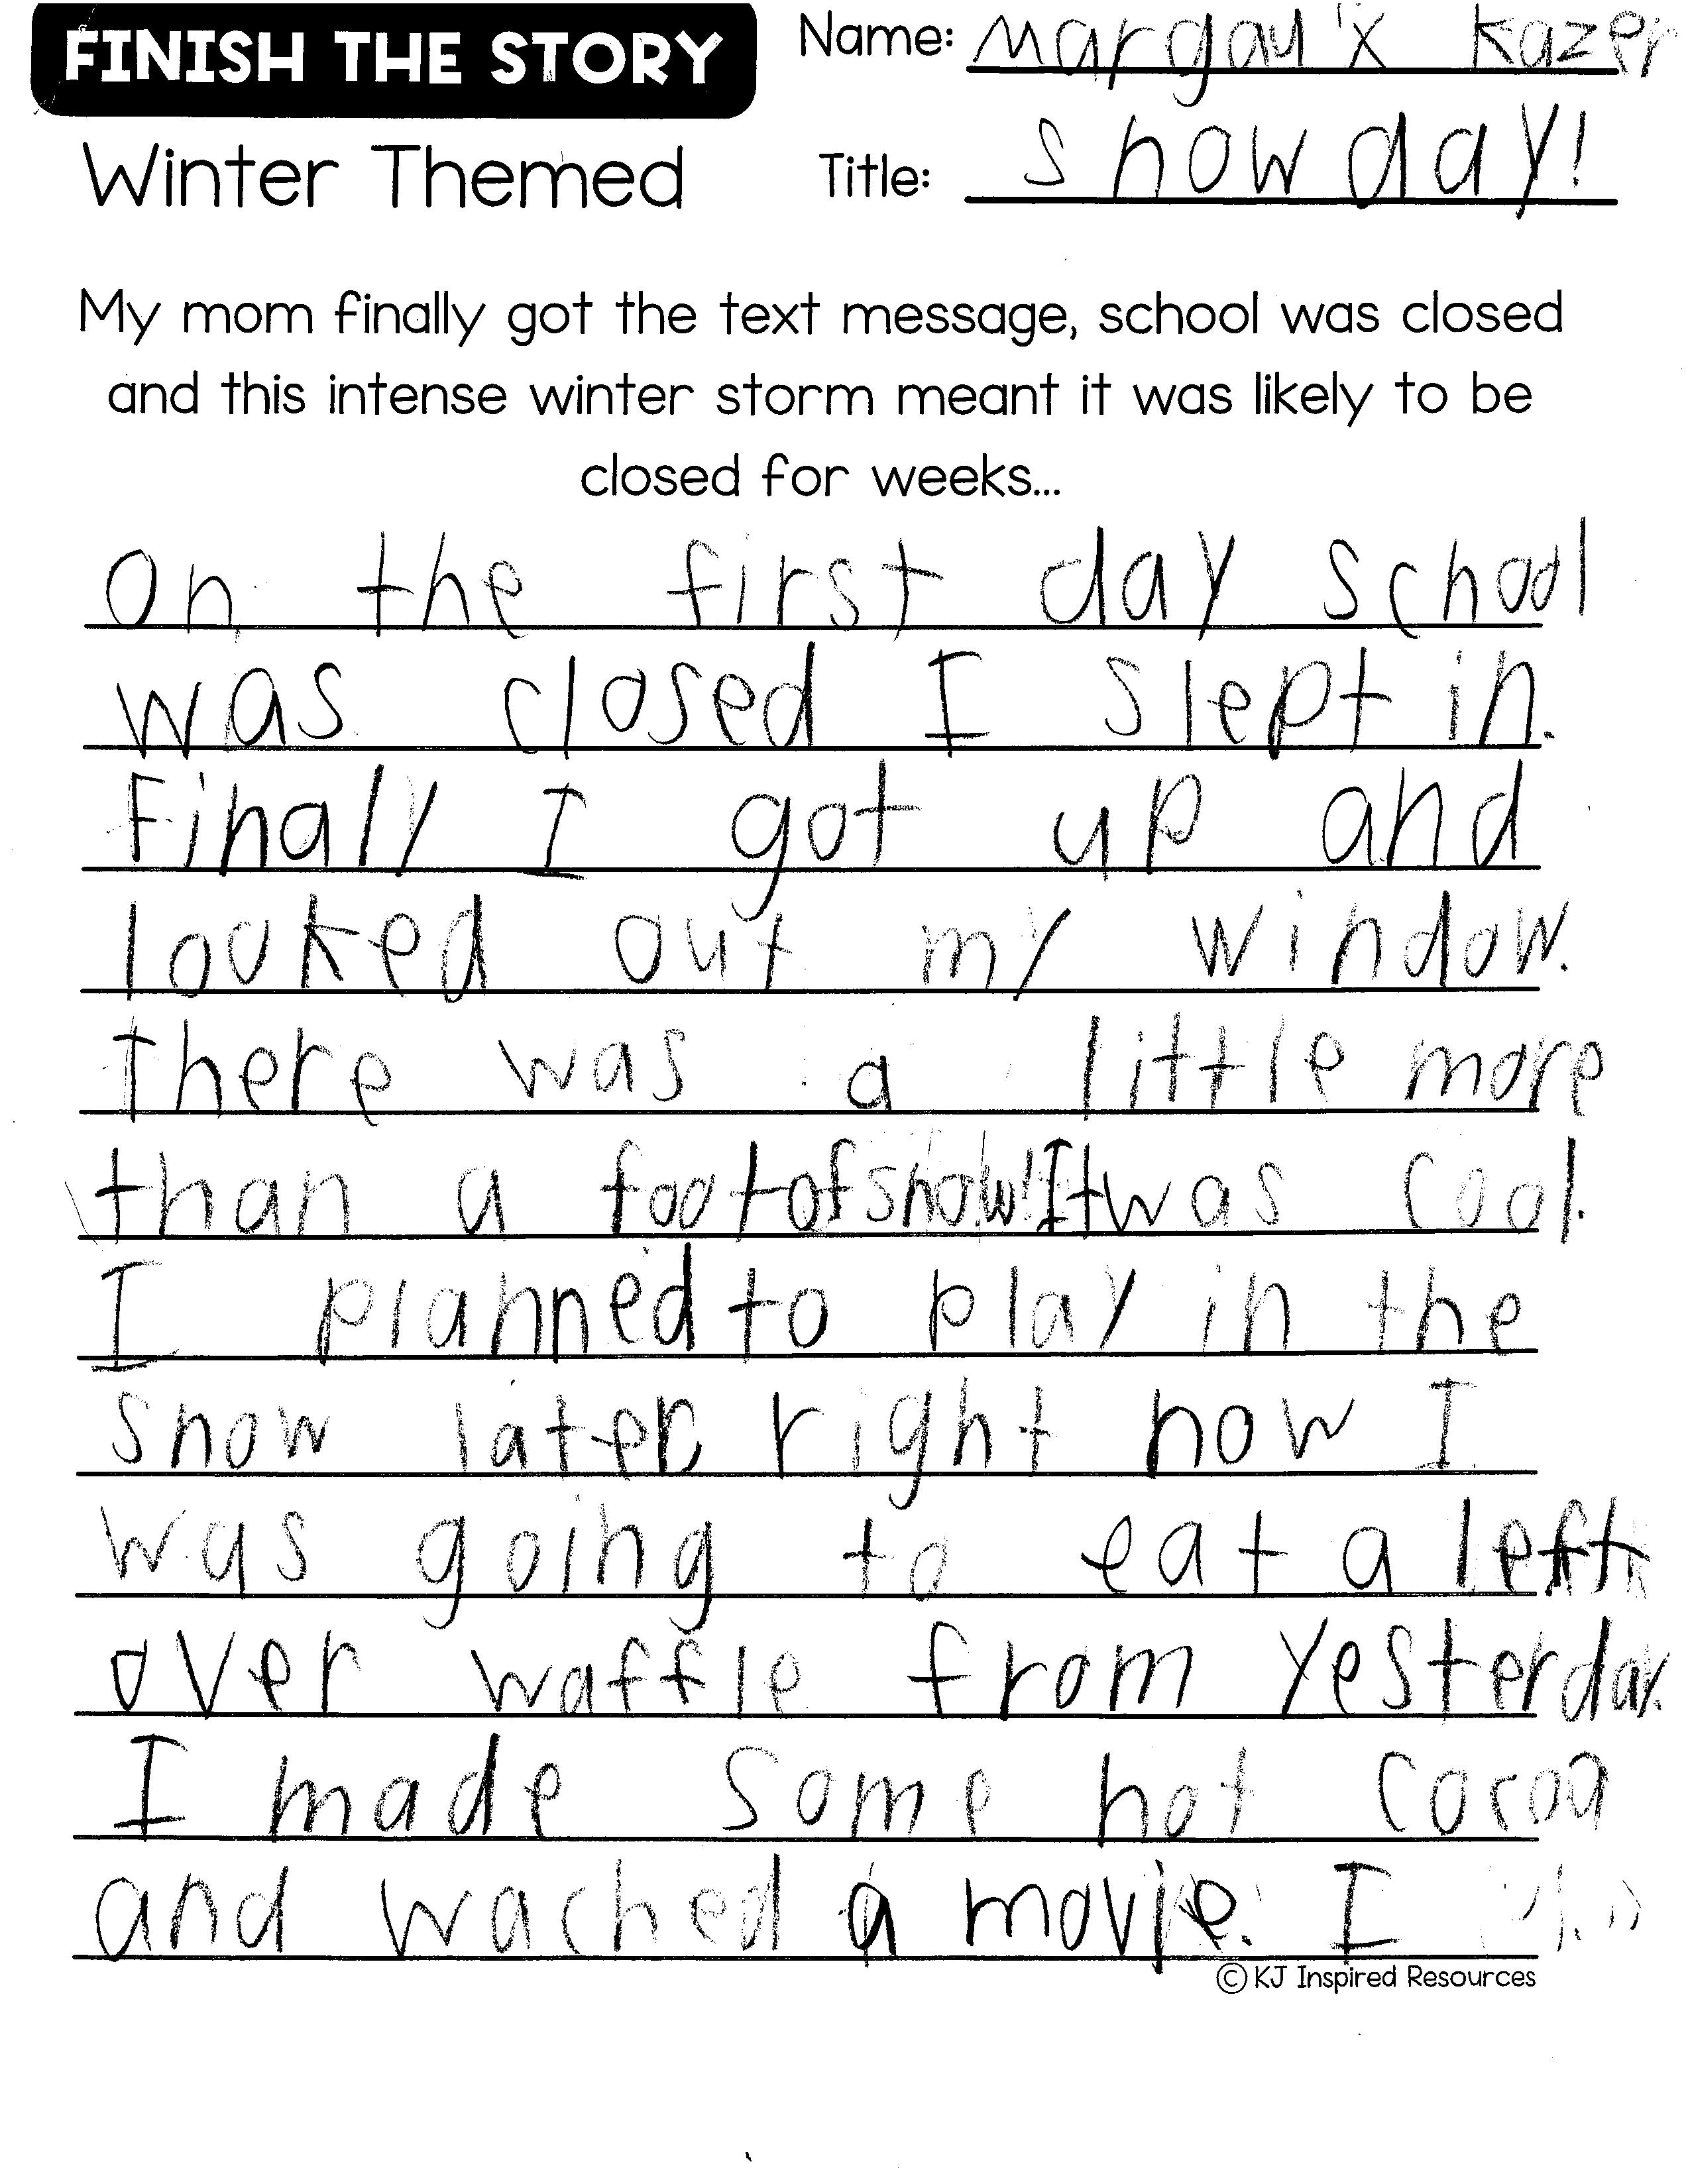 FINISH THE STORY
Name: Margau'x Kazer
Winter Themed
Title: snow day!
My mom finally got the text message, school was closed
and this intense winter storm meant it was likely to be
closed for weeks...
On the first day school
was closed I slept in.
Finaly I got up and
looked out my window.
There was a little more
than a foot of snow! It was cool.
I planned to play in the
snow later, right now I
was going to eat a left
over waffle from yesterday.
I made some hot cocoa
and wached a movie. I
© KJ Inspired Resources